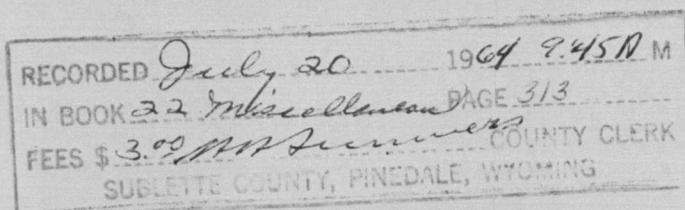 RECORDED July 20 1964 9:45 A M
IN BOOK 22 Miscellaneous PAGE 313
FEES $ 3.00 Summers COUNTY CLERK
SUBLETTE COUNTY, PINEDALE, WYOMING